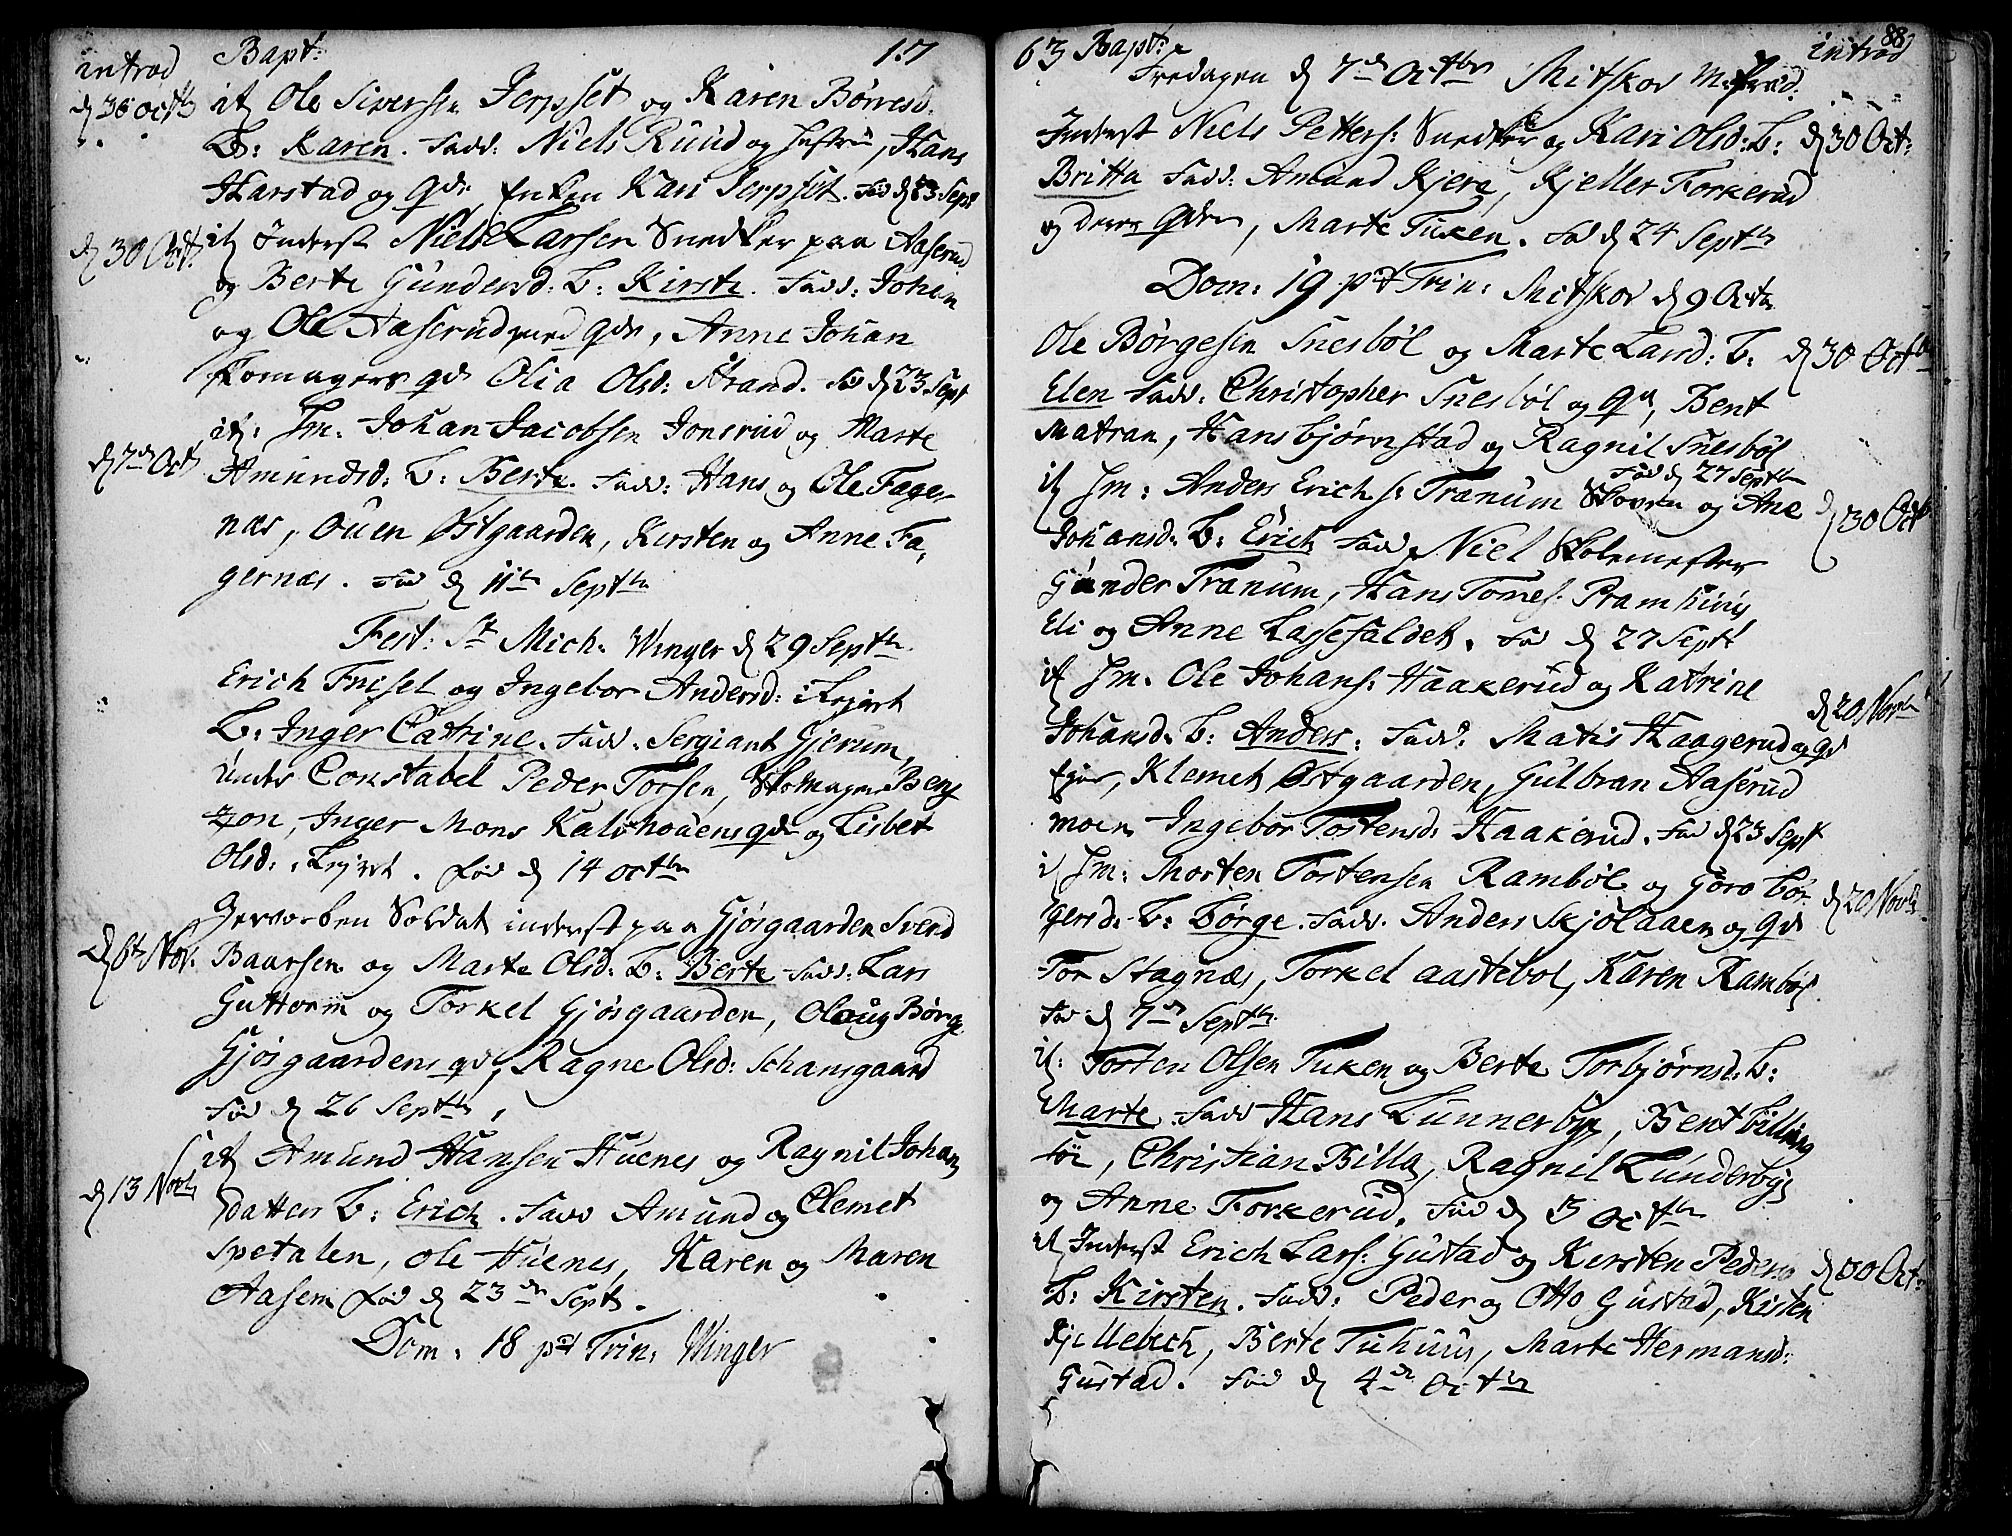 introd Bapt: 17
d 30 octb it Ole Siversen Jerpset og Karen Børresd:
B: Karen. Fadd: Niels Ruud og Hustru, Hans
Harstad og qde Enken Kari Jerpset. Fød d 23 Sept
d 30 Oct: it Inderst Niels Larsen Snedker paa Aaserud
og Berte Gundersd: B: Kirste. Fadd: Johan
og Ole Aaserud med qde, Anne Johan
Skomagers qde Olia Olsd: Strand. Fød d 23 Sept
d 7de Oct it: Jm. Johan Jacobsen Jonsrud og Marte
Amundsd: B: Berte. Fadd: Hans og Ole Fager-
næs, Ouen Østgaarden, Kirsten og Anne Fa-
gernæs. Fød d 11te Septbr
Fest: St Mich. Winger d 29 Septbr
Erich Frisel og Ingebor Andersd:
B: Inger Catrine. Fadd. Sergiant Gjerum,
Under Constabel Peder Torsen, Skomager Beng
zon, Inger Mons Kalvhouens qde og Lisbet
Olsd: Fød d 14 octbr
d 6te Nov. Gevorben Soldat inderst paa Gjøsgaarden Svend
Baarsen og Marte Olsd: B: Berte Fadd: Lars
Guttorm og Torkel Gjøsgaarden, Oloug Børge
Gjøsgaardens qde, Ragne Olsd: Schansgaard
Fød d 26 Septbr.
d 13 Novb it Amund Hansen Huenes og Ragnil Johans
datter B: Erich. Fadd Amund og Clemet
Spetalen, Ole Huenes, Karen og Maren
Aasem Fød d 23de Sept.
Dom. 18 pt Trin: Winger
63 Bapt: introd 88
Fredagen d 7de Octbr Mitskov
Inderst Niels Petters: Snedker og Kari Olsd: B: d 30 Oct:
Britta Fadd: Amund Kjera, Kjeller Forkerud
og deres qder, Marte Tuken. Fød d 24 Septbr
Dom: 19 pt Trin: Mitskov d 9 Octbr
Ole Børgesen Snesbøl og Marte Larsd: B: d 30 Octb
Elen Fadd: Christopher Snesbøl og qde, Bent
Matran, Hans Bjørnstad og Ragnil Snesbøl
Fød d 27 Septbr
it Jm: Anders Erichs: Tranum Skoven og Ane d 30 Octb
Johansd: B: Erich Fadd Niel Skolemester
Gunder Tranum, Hans Tomes: Pramhuus
Eli og Anne Lassefaldet. Fød d 27 Sept
it Jm. Ole Johans: Haakerud og Katrine d 20 Novb
Johansd. B: Anders. Fadd: Matis Haagerud og qde
Klemet Østgaarden, Gulbran Aaserud
moen Ingebor Tostensd: Haakerud. Fød d 23 Sept
it Jm: Morten Tortensen Rambøl og Goro Bør d 20 Novb.
gersd: B: Børge. Fadd. Anders Skjølaaen og qde
Tor Stagnæs, Torkel Aastebol, Karen Rambøl
Fød d 7de Septbr.
it: Torten Olsen Tuken og Berte Torbjørnsd: B:
Marte. Fadd Hans Lunnerbye, Bent Billing
føe, Christian Billa, Ragnil Lunderbye
og Anne Forkerud. Fød d 5 Octbr
it Inderst Erich Lars: Gustad og Kirsten Peders: d 30 Oct:
B: Kirsten. Fadd: Peder og Otto Gustad, Kisten
Kjellebech, Berte Tuhuus, Marte Hermansd:
Gustad. Fød d 4de Octbr